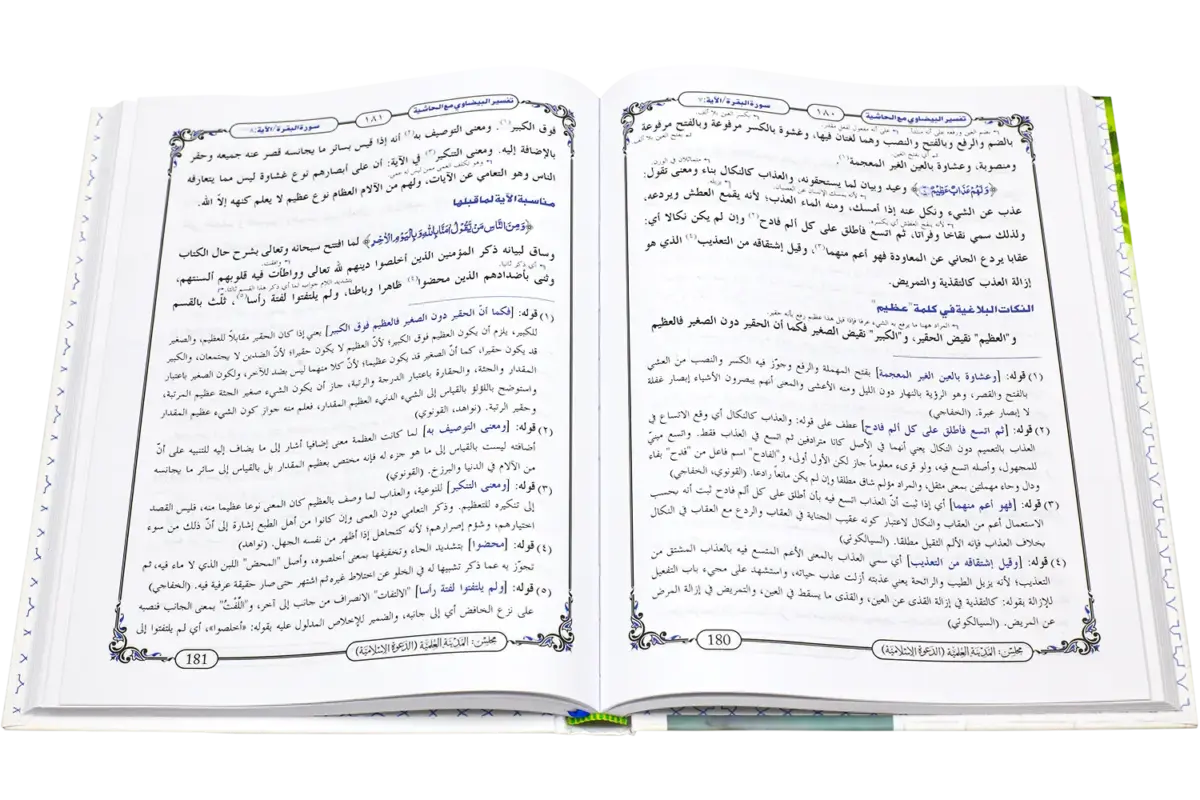 تفسير البيضاوي مع الحاشية
١٨٠
سورة البقرة/الآية:٧
بالضم والرفع وبالفتح والنصب وهما لغتان فيها، وغشوة بالكسر مرفوعة وبالفتح مرفوعة
ومنصوبة، وعشاوة بالعين الغير المعجمة(١)
﴿وَلَهُمْ عَذَابٌ عَظِيْمٌ﴾ وعيد وبيان لما يستحقونه، والعذاب كالنكال بناء ومعنى تقول:
عذب عن الشيء ونكل عنه إذا أمسك، ومنه الماء العذب؛ لأنه يقمع العطش ويردعه،
ولذلك سمي نقاخا وفراتا، ثم اتسع فأطلق على كل ألم فادح(٢) وإن لم يكن نكالا أي:
عقابا يردع الجاني عن المعاودة فهو أعم منهما(٣)، وقيل إشتقاقه من التعذيب(٤) الذي هو
إزالة العذب كالتقذية والتمريض.
النكات البلاغية في كلمة "عظيم"
و"العظيم" نقيض الحقير، و"الكبير" نقيض الصغير فكما أن الحقير دون الصغير فالعظيم
(١) قوله: [وعشاوة بالعين الغير المعجمة] بفتح المهملة والرفع وجوّز فيه الكسر والنصب من العشي
بالفتح والقصر، وهو الرؤية بالنهار دون الليل ومنه الأعشى والمعنى أنهم يبصرون الأشياء إبصار غفلة
لا إبصار عبرة. (الخفاجي)
(٢) قوله: [ثم اتسع فأطلق على كل ألم فادح] عطف على قوله: والعذاب كالنكال أي وقع الاتساع في
العذاب بالتعميم دون النكال يعني أنهما في الأصل كانا مترادفين ثم اتسع في العذاب فقط. واتسع مبنيّ
للمجهول، وأصله اتسع فيه، ولو قرىء معلوماً جاز لكن الأول أولى، و"الفادح" اسم فاعل من "فدح" بفاء
ودال وحاء مهملتين بمعنى مثقل، والمراد مؤلم شاق مطلقا وإن لم يكن مانعاً رادعا. (القونوي، الخفاجي)
(٣) قوله: [فهو أعم منهما] أي إذا ثبت أنّ العذاب اتسع فيه بأن أطلق على كل ألم فادح ثبت أنه بحسب
الاستعمال أعم من العقاب والنكال لاعتبار كونه عقيب الجناية في العقاب والردع مع العقاب في النكال
بخلاف العذاب فإنه الألم الثقيل مطلقا. (السيالكوتي)
(٤) قوله: [وقيل إشتقاقه من التعذيب] أي سمي العذاب بالمعنى الأعم المتسع فيه بالعذاب المشتق من
التعذيب؛ لأنه يزيل الطيب والرائحة يعني عذبته أزلت عذب حياته، واستشهد على مجيء باب التفعيل
للإزالة بقوله: كالتقذية في إزالة القذى عن العين، والقذى ما يسقط في العين، والتمريض في إزالة المرض
عن المريض. (السيالكوتي)
مجلس: المَدِيْنَةِ العِلْمِيَّة (الدَّعْوَة الإِسْلَامِيَّة)
180
تفسير البيضاوي مع الحاشية
١٨١
سورة البقرة/الآية:٨
فوق الكبير(١). ومعنى التوصيف به(٢) أنه إذا قيس بسائر ما يجانسه قصر عنه جميعه وحقر
بالإضافة إليه. ومعنى التنكير(٣) في الآية: أن على أبصارهم نوع غشاوة ليس مما يتعارفه
الناس وهو التعامي عن الآيات، ولهم من الآلام العظام نوع عظيم لا يعلم كنهه إلاّ الله.
مناسبة الآية لما قبلها
﴿وَمِنَ النَّاسِ مَنْ يَّقُوْلُ اٰمَنَّا بِاللّٰهِ وَبِالْيَوْمِ الْاٰخِرِ﴾ لما افتتح سبحانه وتعالى بشرح حال الكتاب
وساق لبيانه ذكر المؤمنين الذين أخلصوا دينهم لله تعالى وواطأت فيه قلوبهم ألسنتهم،
وثنى بأضدادهم الذين محضوا(٤) ظاهرا وباطنا، ولم يلتفتوا لفتة رأسا(٥)، ثلّث بالقسم
(١) قوله: [فكما أنّ الحقير دون الصغير فالعظيم فوق الكبير] يعني إذا كان الحقير مقابلاً للعظيم، والصغير
للكبير، يلزم أن يكون العظيم فوق الكبير؛ لأنّ العظيم لا يكون حقيرا؛ لأنّ الضدين لا يجتمعان، والكبير
قد يكون حقيرا، كما أنّ الصغير قد يكون عظيما؛ لأنّ كلا منهما ليس بضد للآخر، ولكون الصغير باعتبار
المقدار والجثة، والحقارة باعتبار الدرجة والرتبة، جاز أن يكون الشيء صغير الجثة عظيم المرتبة،
واستوضح باللؤلؤ بالقياس إلى الشيء الدنيء العظيم المقدار، فعلم منه جواز كون الشيء عظيم المقدار
وحقير الرتبة. (نواهد، القونوي)
(٢) قوله: [ومعنى التوصيف به] لما كانت العظمة معنى إضافيا أشار إلى ما يضاف إليه للتنبيه على أنّ
أضافته ليست بالقياس إلى ما هو جزء له فإنه مختص بعظيم المقدار بل بالقياس إلى سائر ما يجانسه
من الآلام في الدنيا والبرزخ. (القونوي)
(٣) قوله: [ومعنى التنكير] للنوعية، والعذاب لما وصف بالعظيم كان المعنى نوعا عظيما منه، فليس القصد
إلى تنكيره للتعظيم. وذكر التعامي دون العمى وإن كانوا من أهل الطبع إشارة إلى أنّ ذلك من سوء
اختيارهم، وشؤم إصرارهم؛ لأنه كتجاهل إذا أظهر من نفسه الجهل. (نواهد)
(٤) قوله: [محضوا] بتشديد الحاء وتخفيفها بمعنى أخلصوه، وأصل "المحض" اللبن الذي لا ماء فيه، ثم
تجوّز به عما ذكر تشبيها له في الخلو عن اختلاط غيره ثم اشتهر حتى صار حقيقة عرفية فيه. (الخفاجي)
(٥) قوله: [ولم يلتفتوا لفتة رأسا] "الالتفات" الانصراف من جانب إلى آخر، و"اللَّفْتُ" بمعنى الجانب فنصبه
على نزع الخافض أي إلى جانبه، والضمير للإخلاص المدلول عليه بقوله: «أخلصوا»، أي لم يلتفتوا إلى
مجلس: المَدِيْنَةِ العِلْمِيَّة (الدَّعْوَة الإِسْلَامِيَّة)
181